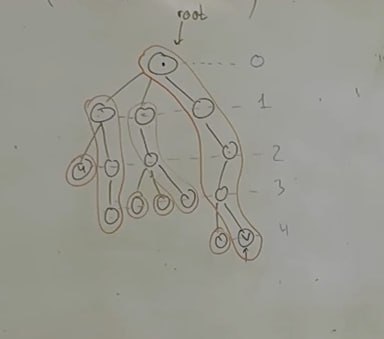 root
0
1
2
3
4
4
v